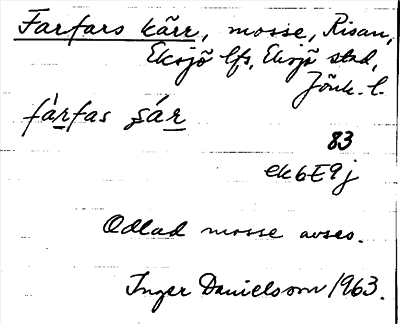 Farfars kärr, mosse, Risan,
Eksjö lfs, Eksjö stad,
Jönk. l.
fàrfas ʂá r
83
ek6E9j
Odlad mosse avses.
Inger Danielsson 1963.